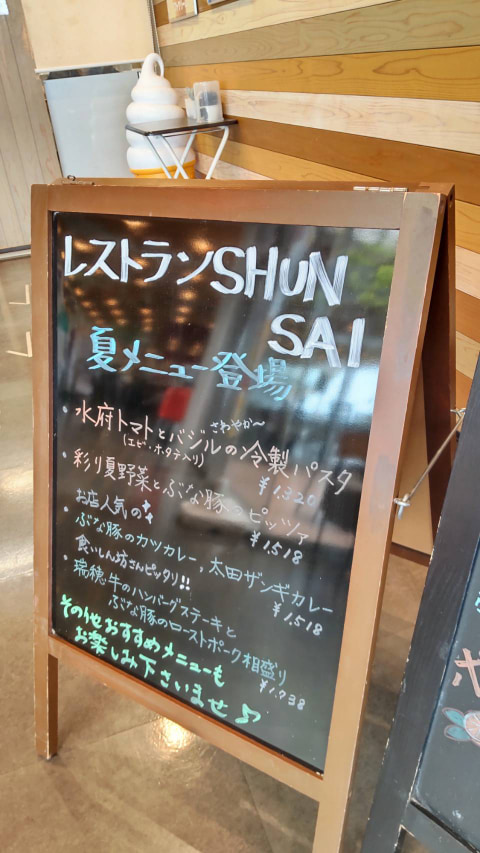 レストランSHUN
SAI
夏メニュー登場
さわやか〜
・水府トマトとバジルの冷製パスタ
(エビ・ホタテ入り)
¥1.320
・彩り夏野菜とぶな豚のピッツァ
¥1.518
お店人気の
・ぶな豚のカツカレー, 太田ザンギカレー
¥1.518
食いしん坊さんピッタリ!!
・瑞穂牛のハンバーグステーキと
ぶな豚のローストポーク相盛り
¥1.738
その他おすすめメニューも
お楽しみ下さいませ♪
ポ